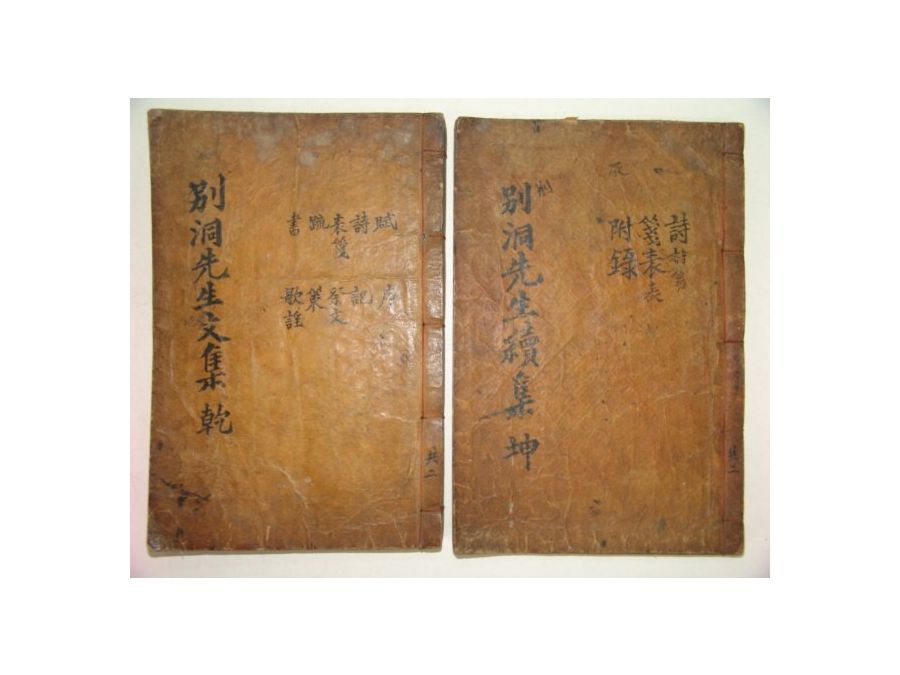 別洞先生文集 乾
賦 序
詩 記
表箋 祭文
疏 策
書 歌謠
共二
別洞先生續集 坤
詩
箋表
附錄
共二